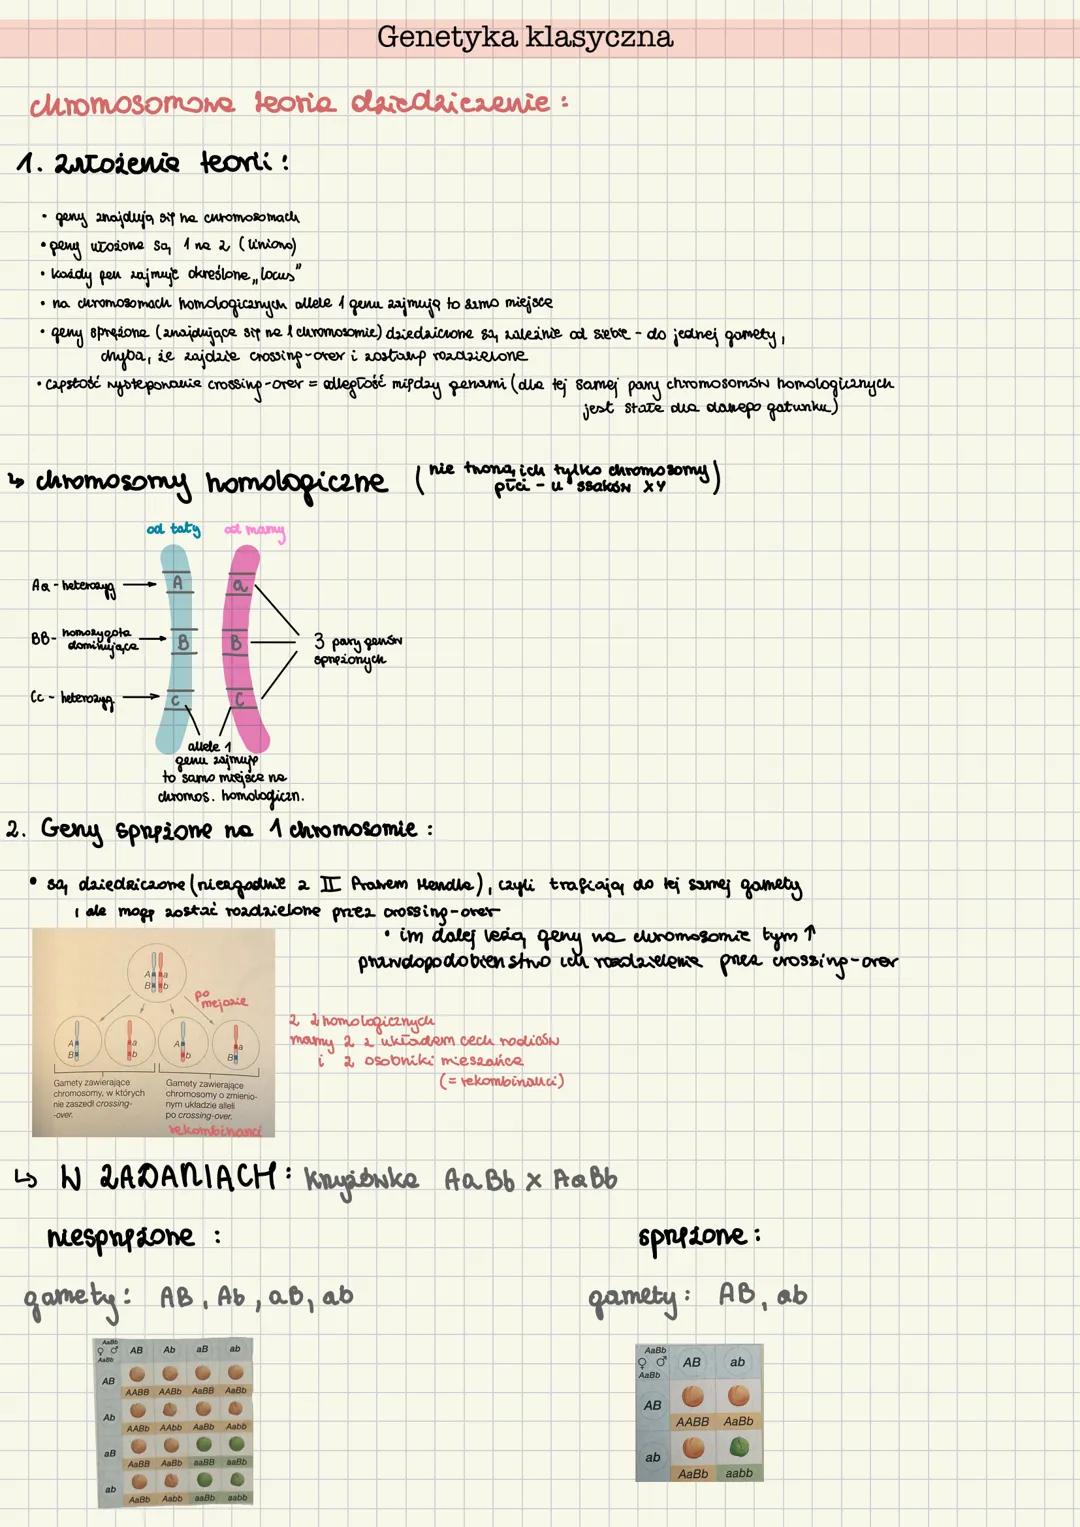 Genetyka klasyczna
chromosomowa teoria dziedziczenie :
1. założenia teorii :
• geny znajdują się na chromosomach
• geny ułożone są 1 na 2 (liniowo)
• każdy gen zajmuje określone „locus"
• na chromosomach homologicznych allele 1 genu zajmują to samo miejsce
• geny sprzężone (znajdujące się na 1 chromosomie) dziedziczone są zależnie od siebie - do jednej gamety,
chyba, że zajdzie crossing-over i zostaną rozdzielone
• częstość występowania crossing-over = odległość między genami (dla tej samej pary chromosomów homologicznych
jest stałe dla danego gatunku)
↳ chromosomy homologiczne (nie tworzą ich tylko chromosomy
płci - u ssaków XY)
od taty od mamy
Aa - heterozyg → A a
BB - homozygota
dominująca → B B
3 pary genów
sprzężonych
Cc - heterozyg → c C
allele 1
genu zajmuję
to samo miejsce na
chromos. homologiczn.
2. Geny sprzężone na 1 chromosomie :
• są dziedziczone (niezgodnie z II Prawem Mendla), czyli trafiają do tej samej gamety
, ale mogą zostać rozdzielone przez crossing-over
• im dalej leżą geny na chromosomie tym ↑
prawdopodobieństwo ich rozdzielenia przez crossing-over
A a
B b
po
mejozie
A a A a
B b b B
Gamety zawierające
chromosomy, w których
nie zaszedł crossing-
-over.
Gamety zawierające
chromosomy o zmienio-
nym układzie alleli
po crossing-over.
rekombinanci
z 2 homologicznych
mamy 2 z układem cech rodziców
i 2 osobniki mieszańce
(= rekombinanci)
↳ W ZADANIACH: krzyżówka AaBb x AaBb
niesprzężone :
sprzężone :
gamety: AB, Ab, aB, ab
gamety: AB, ab
AaBb
♀ ♂ AB Ab aB ab
AaBb
AB
AABB AABb AaBB AaBb
Ab
AABb AAbb AaBb Aabb
aB
AaBB AaBb aaBB aaBb
ab
AaBb Aabb aaBb aabb
AaBb
♀ ♂ AB ab
AaBb
AB
AABB AaBb
ab
AaBb aabb